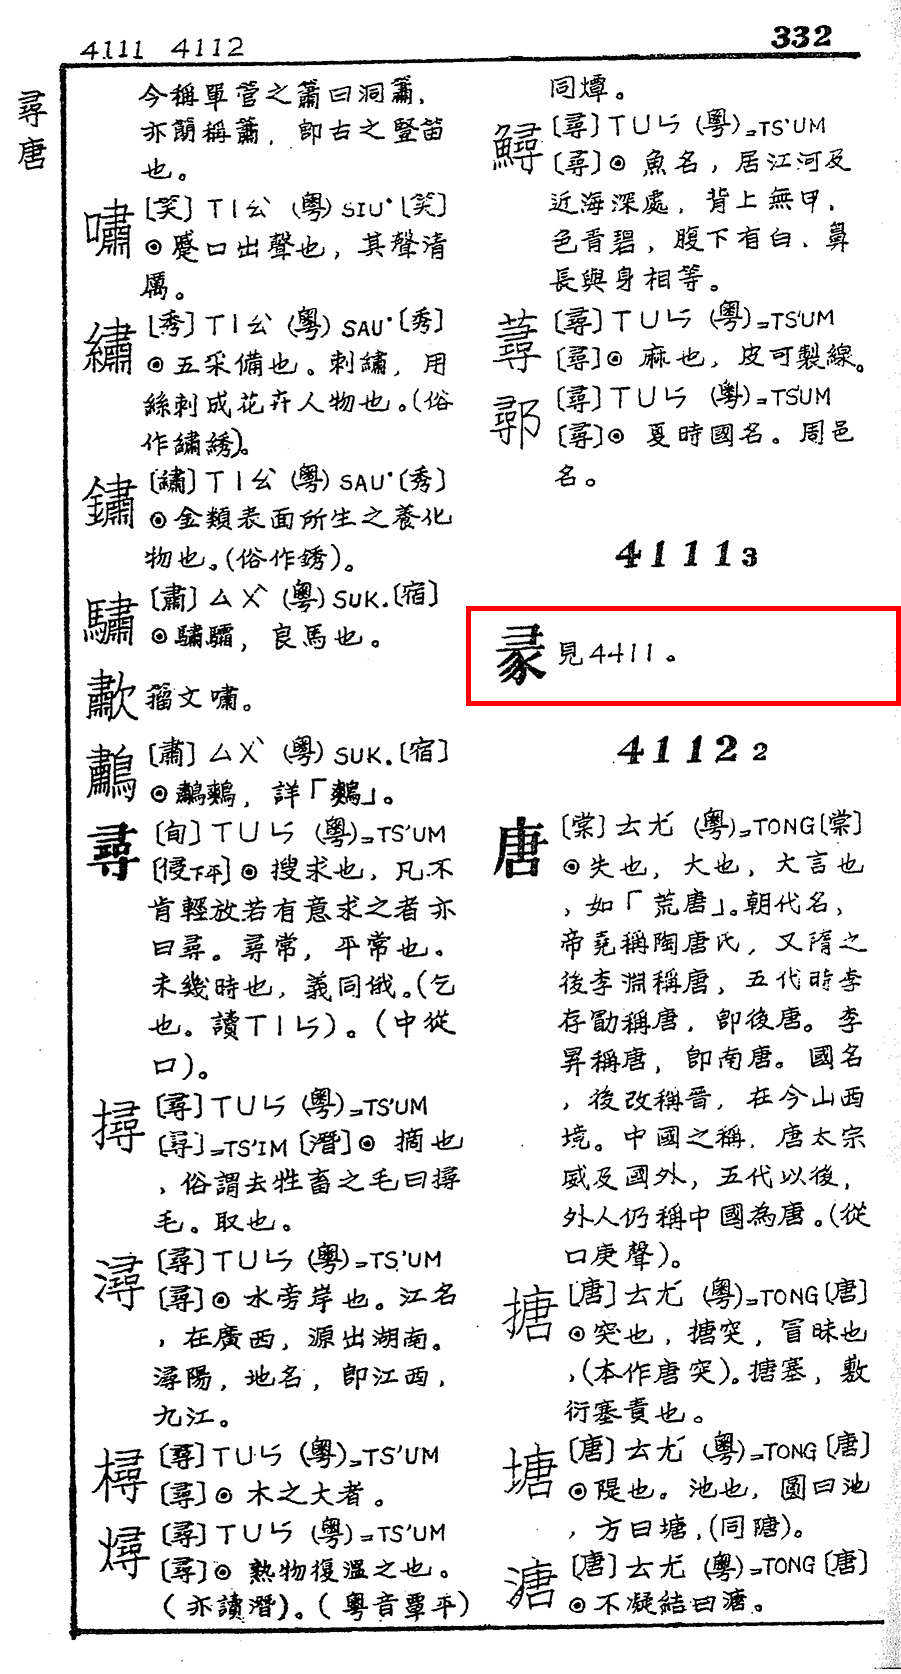 4111 4112
332
尋唐
今稱單管之簫曰洞簫,
亦簡稱簫, 即古之豎笛
也。
嘯 [笑] ㄒㄧㄠ (粵) SIU' [笑]
⊙蹙口出聲也, 其聲清
厲。
繡 [秀] ㄒㄧㄠ (粵) SAU' [秀]
⊙五采備也。刺繡, 用
絲刺成花卉人物也。(俗
作繡綉)。
鏽 [繡] ㄒㄧㄠ (粵) SAU' [秀]
⊙金類表面所生之養化
物也。(俗作銹)。
驌 [肅] ㄙㄨˋ (粵) SUK. [宿]
⊙驌驦, 良馬也。
歗 籀文嘯。
鷫 [肅] ㄙㄨˋ (粵) SUK. [宿]
⊙鷫鷞, 詳「鷞」。
尋 [旬] ㄒㄩㄣ (粵)=TS'UM
[侵下平] ⊙ 搜求也, 凡不
肯輕放若有意求之者亦
曰尋。尋常, 平常也。
未幾時也, 義同俄。(乞
也。讀ㄒㄧㄣ)。(中從
口)。
撏 [尋] ㄒㄩㄣ (粵)=TS'UM
[尋]=TS'IM [潛] ⊙ 摘也
, 俗謂去牲畜之毛曰撏
毛。取也。
潯 [尋] ㄒㄩㄣ (粵)=TS'UM
[尋] ⊙ 水旁岸也。江名
, 在廣西, 源出湖南。
潯陽, 地名, 即江西,
九江。
樳 [尋] ㄒㄩㄣ (粵)=TS'UM
[尋] ⊙ 木之大者。
燖 [尋] ㄒㄩㄣ (粵)=TS'UM
[尋] ⊙ 熟物復溫之也。
(亦讀潛)。(粵音覃平)
同燂。
鱘 [尋] ㄒㄩㄣ (粵)=TS'UM
[尋] ⊙ 魚名, 居江河及
近海深處, 背上無甲,
色青碧, 腹下有白、鼻
長與身相等。
蕁 [尋] ㄒㄩㄣ (粵)=TS'UM
[尋] ⊙ 麻也, 皮可製線。
鄩 [尋] ㄒㄩㄣ (粵)=TS'UM
[尋] ⊙ 夏時國名。周邑
名。
4111 3
彖 見4411。
4112 2
唐 [棠] ㄊㄤ (粵)=TONG [棠]
⊙失也, 大也, 大言也
, 如「荒唐」。朝代名,
帝堯稱陶唐氏, 又隋之
後李淵稱唐, 五代時李
存勖稱唐, 即後唐。李
昇稱唐, 即南唐。國名
, 後改稱晉, 在今山西
境。中國之稱, 唐太宗
威及國外, 五代以後,
外人仍稱中國為唐。(從
口庚聲)。
搪 [唐] ㄊㄤ (粵)=TONG [唐]
⊙突也, 搪突, 冒昧也
,(本作唐突)。搪塞, 敷
衍塞責也。
塘 [唐] ㄊㄤ (粵)=TONG [唐]
⊙隄也。池也, 圓曰池
, 方曰塘,(同隚)。
溏 [唐] ㄊㄤ (粵)=TONG [唐]
⊙不凝結曰溏。